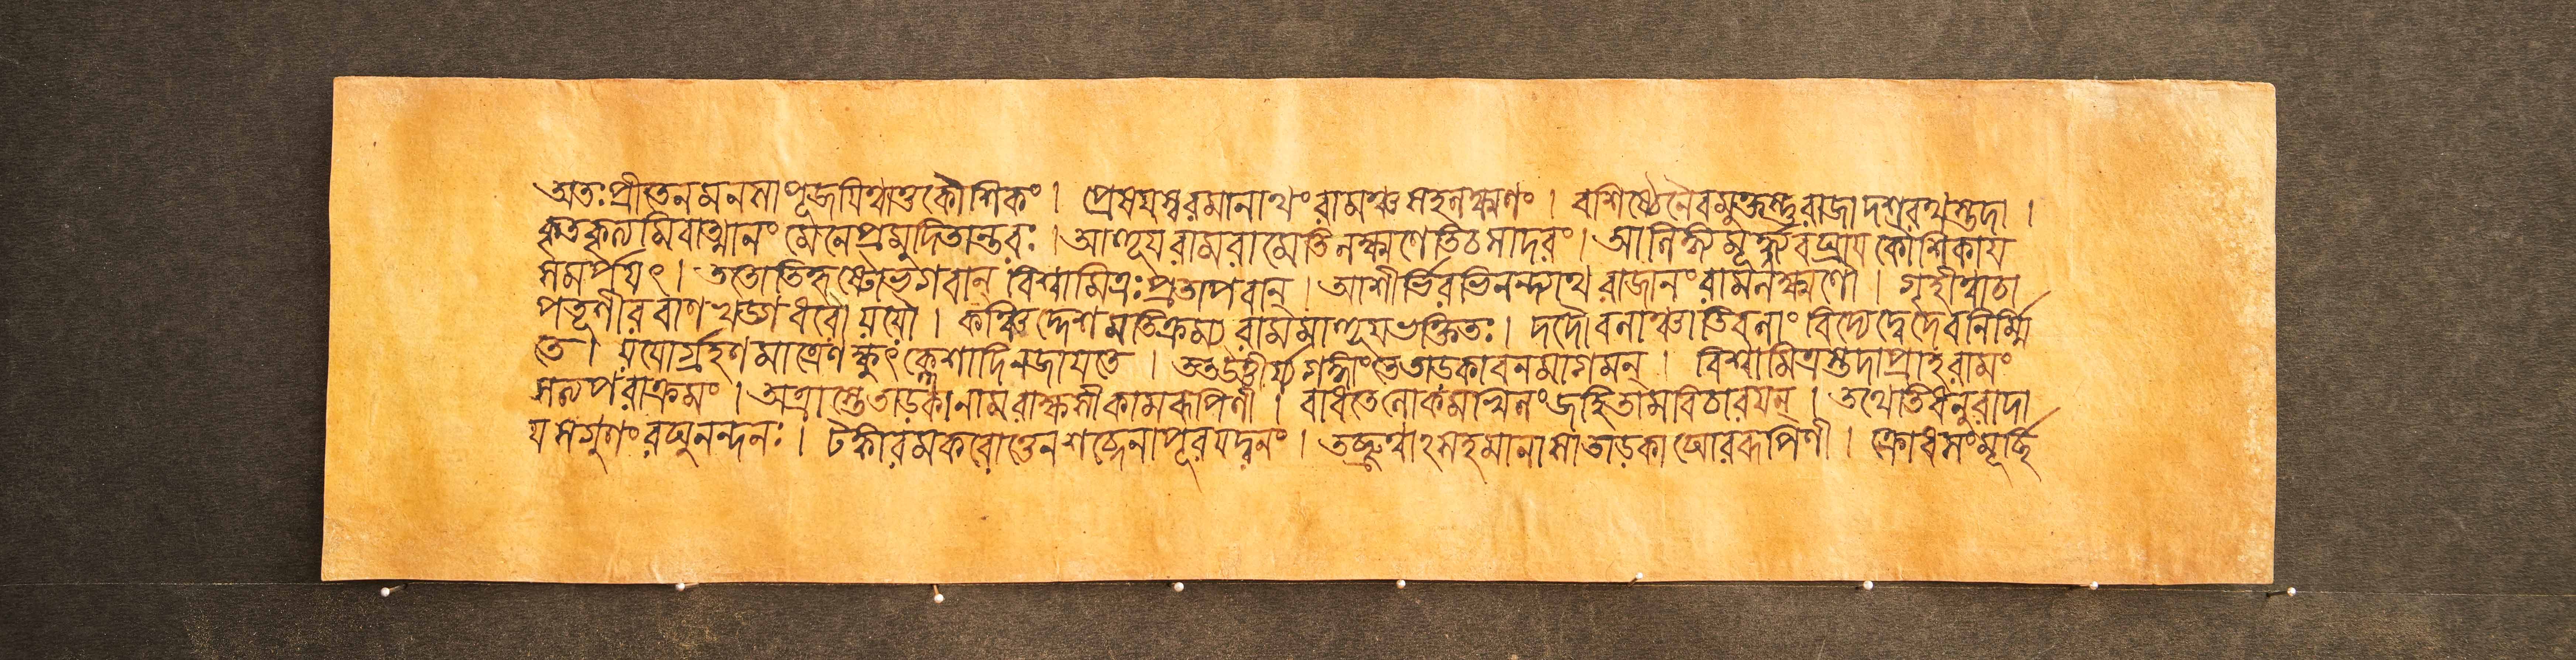 অতঃপ্রীতেনমনসাপূজয়িত্বাতুকৌশিকং। প্রেষয়স্বরমানাথংরামঞ্চসহলক্ষ্মণং। বশিষ্ঠেনৈবমুক্তস্তুরাজাদশরথস্তদা।
কৃতকৃত্যমিবাত্মানং মেনেপ্রমুদিতান্তরঃ।আহূয়রামরামেতিলক্ষ্মণেতিচসাদরং।আলিঙ্গ্যমূর্দ্ধ্ন্যবঘ্রায় কৌশিকায়
সমর্পয়ৎ। ততোতিহৃষ্টোভগবান্ বিশ্বামিত্রঃপ্রতাপবান্।আশীর্ভিরভিনন্দ্যাথ রাজানংরামলক্ষ্মণৌ। গৃহীত্বাচা
পতূণীরবাণখড্গধরৌ যযৌ। কিঞ্চিদ্দেশমতিক্রম্য রামমাহূয়ভক্তিতঃ। দদৌবলাঞ্চাতিবলাং বিদ্যেদ্বেদেবনির্ম্মি
তে। যয়োর্গ্রহণমাত্রেণক্ষুৎক্লেশাদিনজায়তে। ততউত্তীর্য্যগঙ্গাংতেতাড়কাবনমাগমন্। বিশ্বামিত্রস্তদাপ্রাহরামং
সত্যপরাক্রমং।অত্রাস্তেতাড়কানামরাক্ষসীকামরূপিণী। বাধতেলোকমখিলংজহিতামবিচারয়ন্। তথেতিধনুরাদা
য়সগুণংরঘুনন্দনঃ। টঙ্কারমকরোত্তেনশব্দেনাপূরয়দ্বনং। তচ্ছ্রুত্বাঽসহমানাসাতাড়কাঘোররূপিণী। ক্রোধসংমূর্চ্ছি